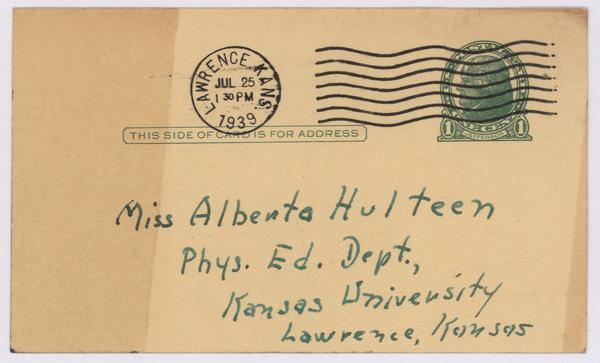 LAWRENCE, KANS.
JUL 25
1 30 PM
1939
1 JEFFERSON 1
THIS SIDE OF CARD IS FOR ADDRESS
Miss Alberta Hulteen
Phys. Ed. Dept.,
Kansas University
Lawrence, Kansas